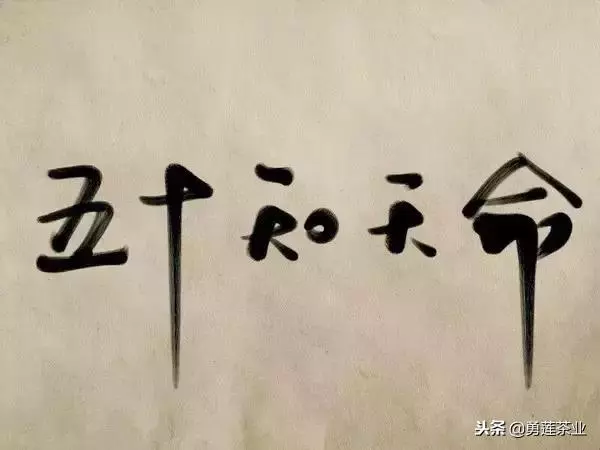 五十知天命
头条 @勇莲茶业